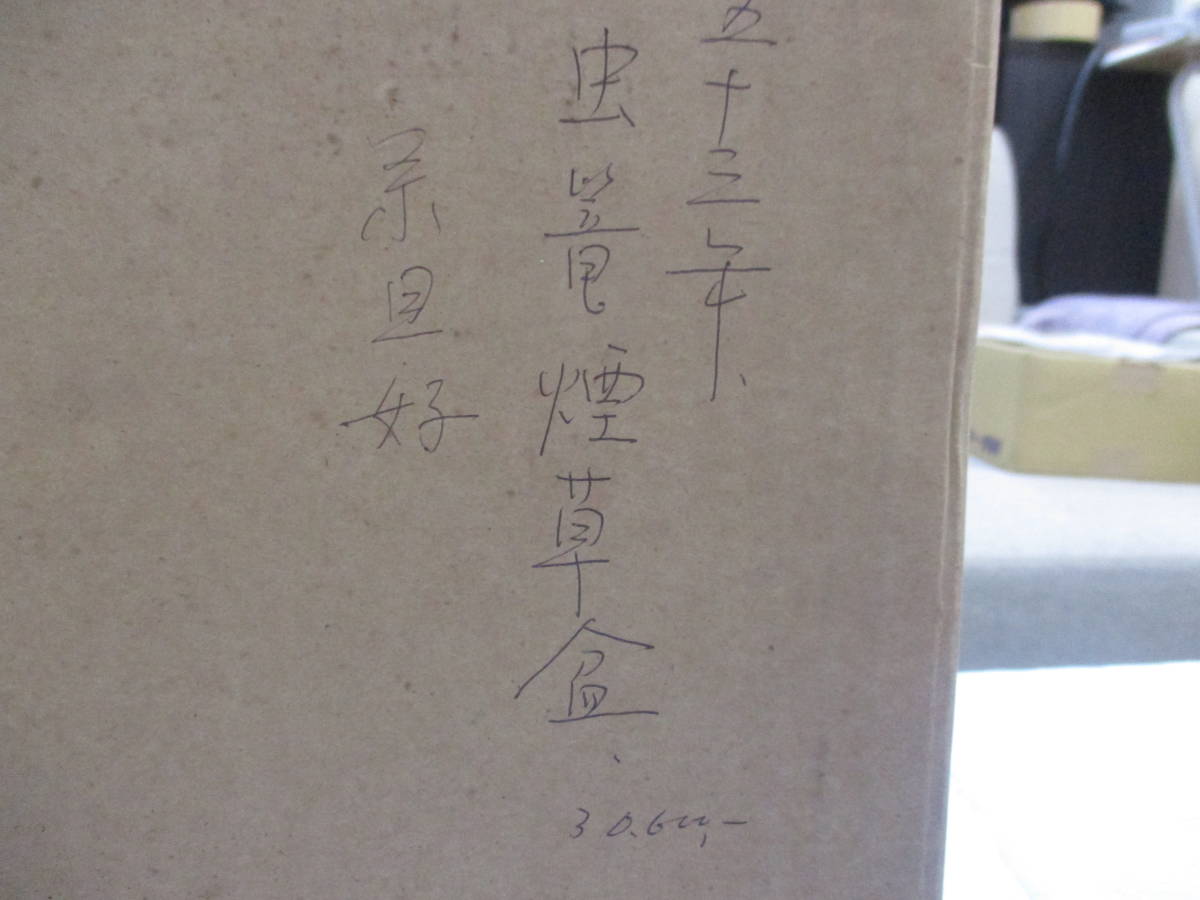 五十三年、
虫籠煙草盒、
宗旦好
30.600,-